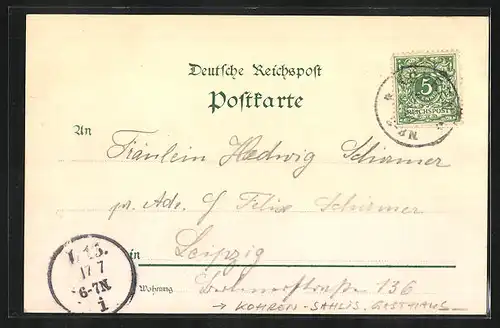 Deutsche Reichspost
Postkarte
5
REICHSPOST
An
Fräulein Hedwig Schirmer
pr. Adr. G Felix Schirmer
in Leipzig
Wohnung 136
→ KOHREN-SAHLIS, GASTHAUS
L. 13.
17 7
6-7N.